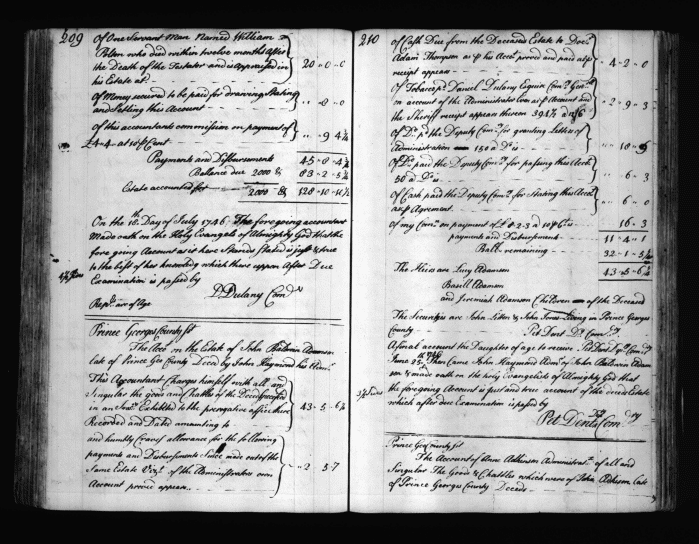 209
Of One Servant Man Named William
Polson who died within twelve months After
the Death of the Testator and is appraised in
his Estate at 20 " 0 " 0
Of Money secured to be paid for drawing Stating
and Settling this Account " 8 " 0
Of this accountants commission on payment of
£4 " 4 " at 10 ℔ Cent " " 9 4¼
Payments and Disbursements 45 " 8 " 4¼
Ballance due 2000 83 " 2 " 5¼
Estate accounted for 2000 128 " 10 " 11½
On the 18th Day of July 1746. The foregoing accountant
Made oath on the Holy Evangels of Almighty God that the
fore going Account as it here Stands Stated is just & true
to the best of his knowledg which there uppon After Due
Examination is passed by
D Dulany Com
Reps are of Age
Prince Georges County sst
The Acct on the Estate of John Baldwin Adamson
late of Prince Geo County Deced by John Haymond his Admr
This Accountant Charges himself with all and
Singular the goods and Chatles of the Deced
in an Invy Exhibited to the prerogative office there
Recorded and Dated amounting to 43 " 5 " 6¼
and humbly Craves allowance for the following
payments and Disbursements Since made out of the
Same Estate Vizt of the Administrators own
Account proved appear 2 " 5 " 7
210
Of Cash Due from the Deceased Estate to Doctr
Adam Thompson as ℔ his Acct proved and paid as ℔
receipt appear " 4 " 2 " 0
Of Tobacco pd Daniel Dulany Esquire Comy Genl
on account of the Administrator Loan as ℔ Account and
the Sheriff receipt appears thereon " 2 " 9 " 3
Of Do pd the Deputy Comy for granting Letters of
Administration 150 a Do is " 18 " 9
Of Do paid the Deputy Comy for passing this Acct
50 a Do is " 6 " 3
Of Cash paid the Deputy Comy for Stating this Acct
as ℔ Agreement " 6 " 0
of my Comn on payment of £8 " 2 " 3 a 10 ℔ Ct is 16 " 3
payments and Disbursmts 11 " 4 " 1
Ball remaining 32 " 1 " 5¼
43 " 5 " 6¼
The Heirs are Lucy Adamson
Basill Adamson
and Jeremiah Adamson Children of the Deceased
The Securityes are John Liton & John Jones Living in Prince Georges
County Per Dent Dy Comy
A final account the Daughter of age to receive
June 25th 1746 Then came John Haymond Admr of John Baldwin Adam
son & made oath on the holy Evangelists of Almighty God that
the foregoing Account is just and true account of the deces Estate
which after due Examination is passed by
Pet Dent Dy Comry
Prince Geo County sst
The Account of Anne Adkinson Administrat of all and
Singular The Goods & Chattles which were of John Adkison Late
of Prince Georges County Deceds